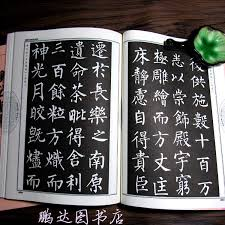 後供施數十百万
悉以崇飾殿宇窮
極雕繪而方丈匡
床靜慮自得貴臣
遷於長樂之南原
遺命荼毗得舍利
三百餘粒方熾而
神光月皎既燼而
鹏达图书店